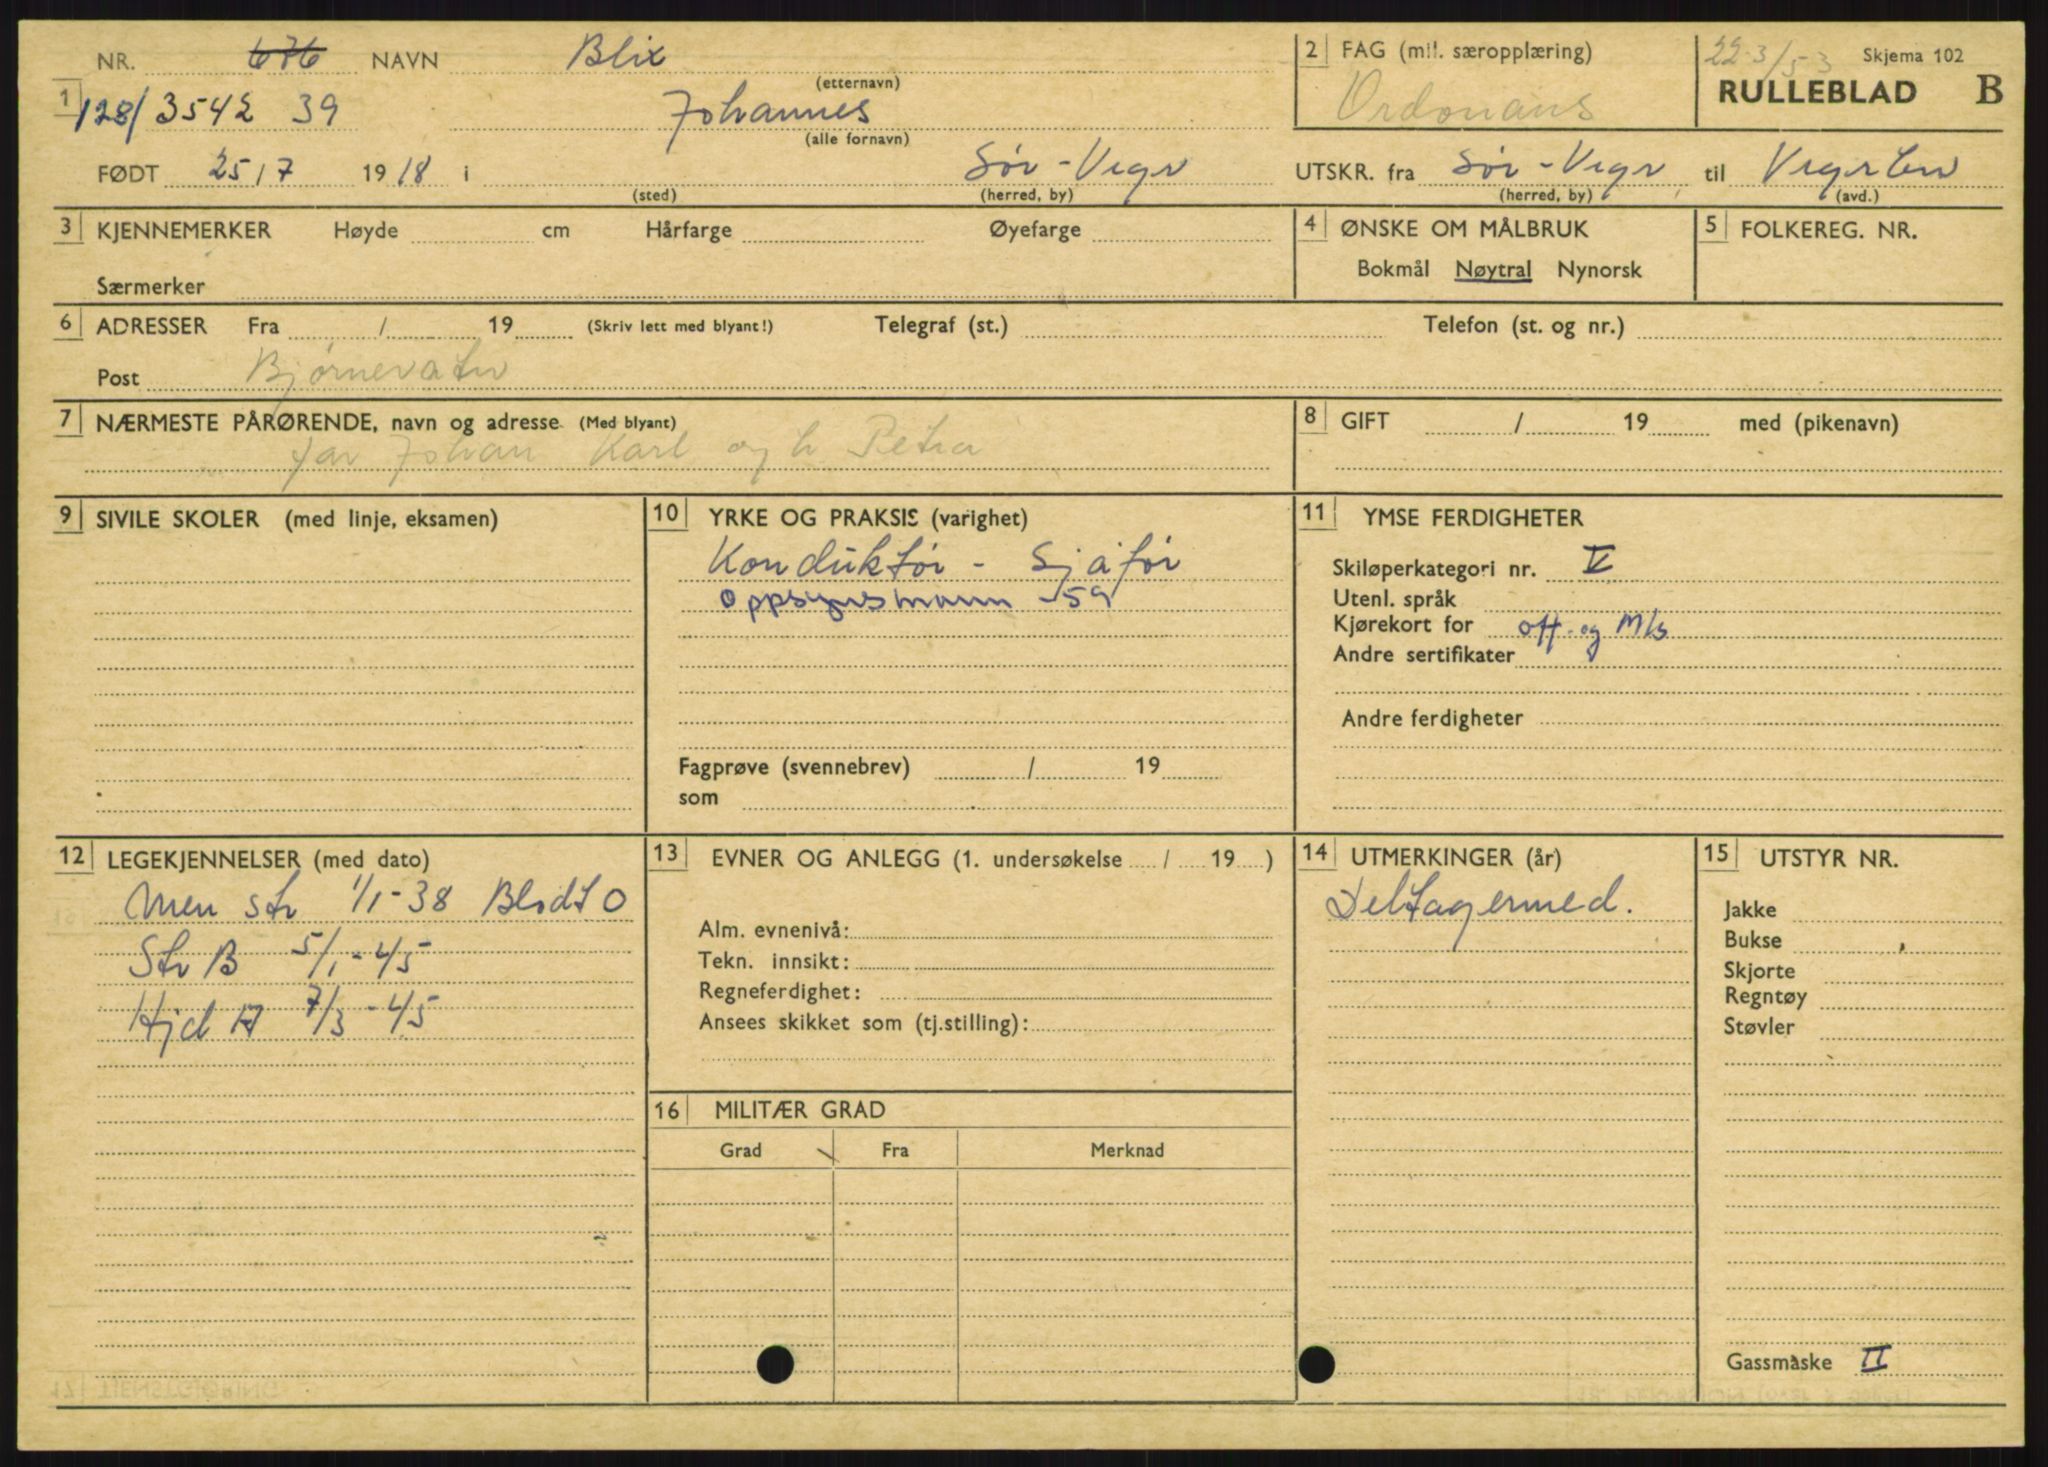 NR. 676 NAVN Blix 2 FAG (mil. særopplæring) 22-3/53 Skjema 102
(etternavn)
1 128/3542 39 Johannes Ordonans RULLEBLAD B
(alle fornavn)
FØDT 25/7 1918 i Sør-Vegr UTSKR. fra Sør-Vegr til
(sted) (herred, by) (herred, by) (avd.)
3 KJENNEMERKER Høyde cm Hårfarge Øyefarge 4 ØNSKE OM MÅLBRUK 5 FOLKEREG. NR.
Bokmål Nøytral Nynorsk
Særmerker
6 ADRESSER Fra / 19 (Skriv lett med blyant!) Telegraf (st.) Telefon (st. og nr.)
Post Bjørnevatn
7 NÆRMESTE PÅRØRENDE, navn og adresse (Med blyant) 8 GIFT / 19 med (pikenavn)
far Johan Karl og h Petra
9 SIVILE SKOLER (med linje, eksamen) 10 YRKE OG PRAKSIS (varighet) 11 YMSE FERDIGHETER
Konduktør - Sjåfør
Skiløperkategori nr. V
Oppsynsmann -59
Utenl. språk
Kjørekort for off. og M/s
Andre sertifikater
Andre ferdigheter
Fagprøve (svennebrev) / 19
som
12 LEGEKJENNELSER (med dato) 13 EVNER OG ANLEGG (1. undersøkelse / 19 ) 14 UTMERKINGER (år) 15 UTSTYR NR.
Men str 1/1-38 Blodt O Deltagermed. Jakke
Alm. evnenivå:
Bukse
Str B 5/1-45 Tekn. innsikt: Skjorte
Regneferdighet: Regntøy
Hjd A 7/3-45 Ansees skikket som (tj.stilling): Støvler
16 MILITÆR GRAD
Grad Fra Merknad
Gassmaske II